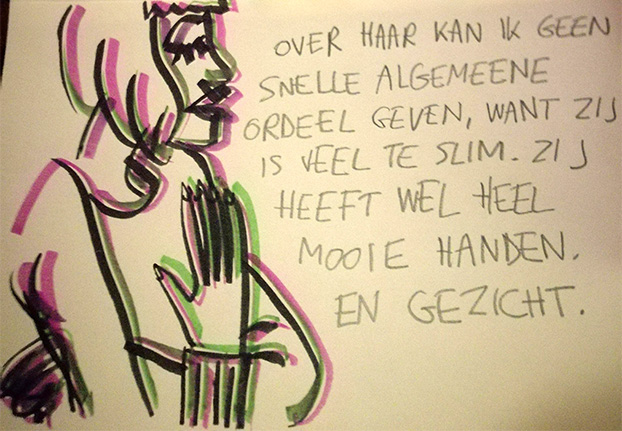 OVER HAAR KAN IK GEEN
SNELLE ALGEMEENE
ORDEEL GEVEN, WANT ZIJ
IS VEEL TE SLIM. ZIJ
HEEFT WEL HEEL
MOOIE HANDEN.
EN GEZICHT.